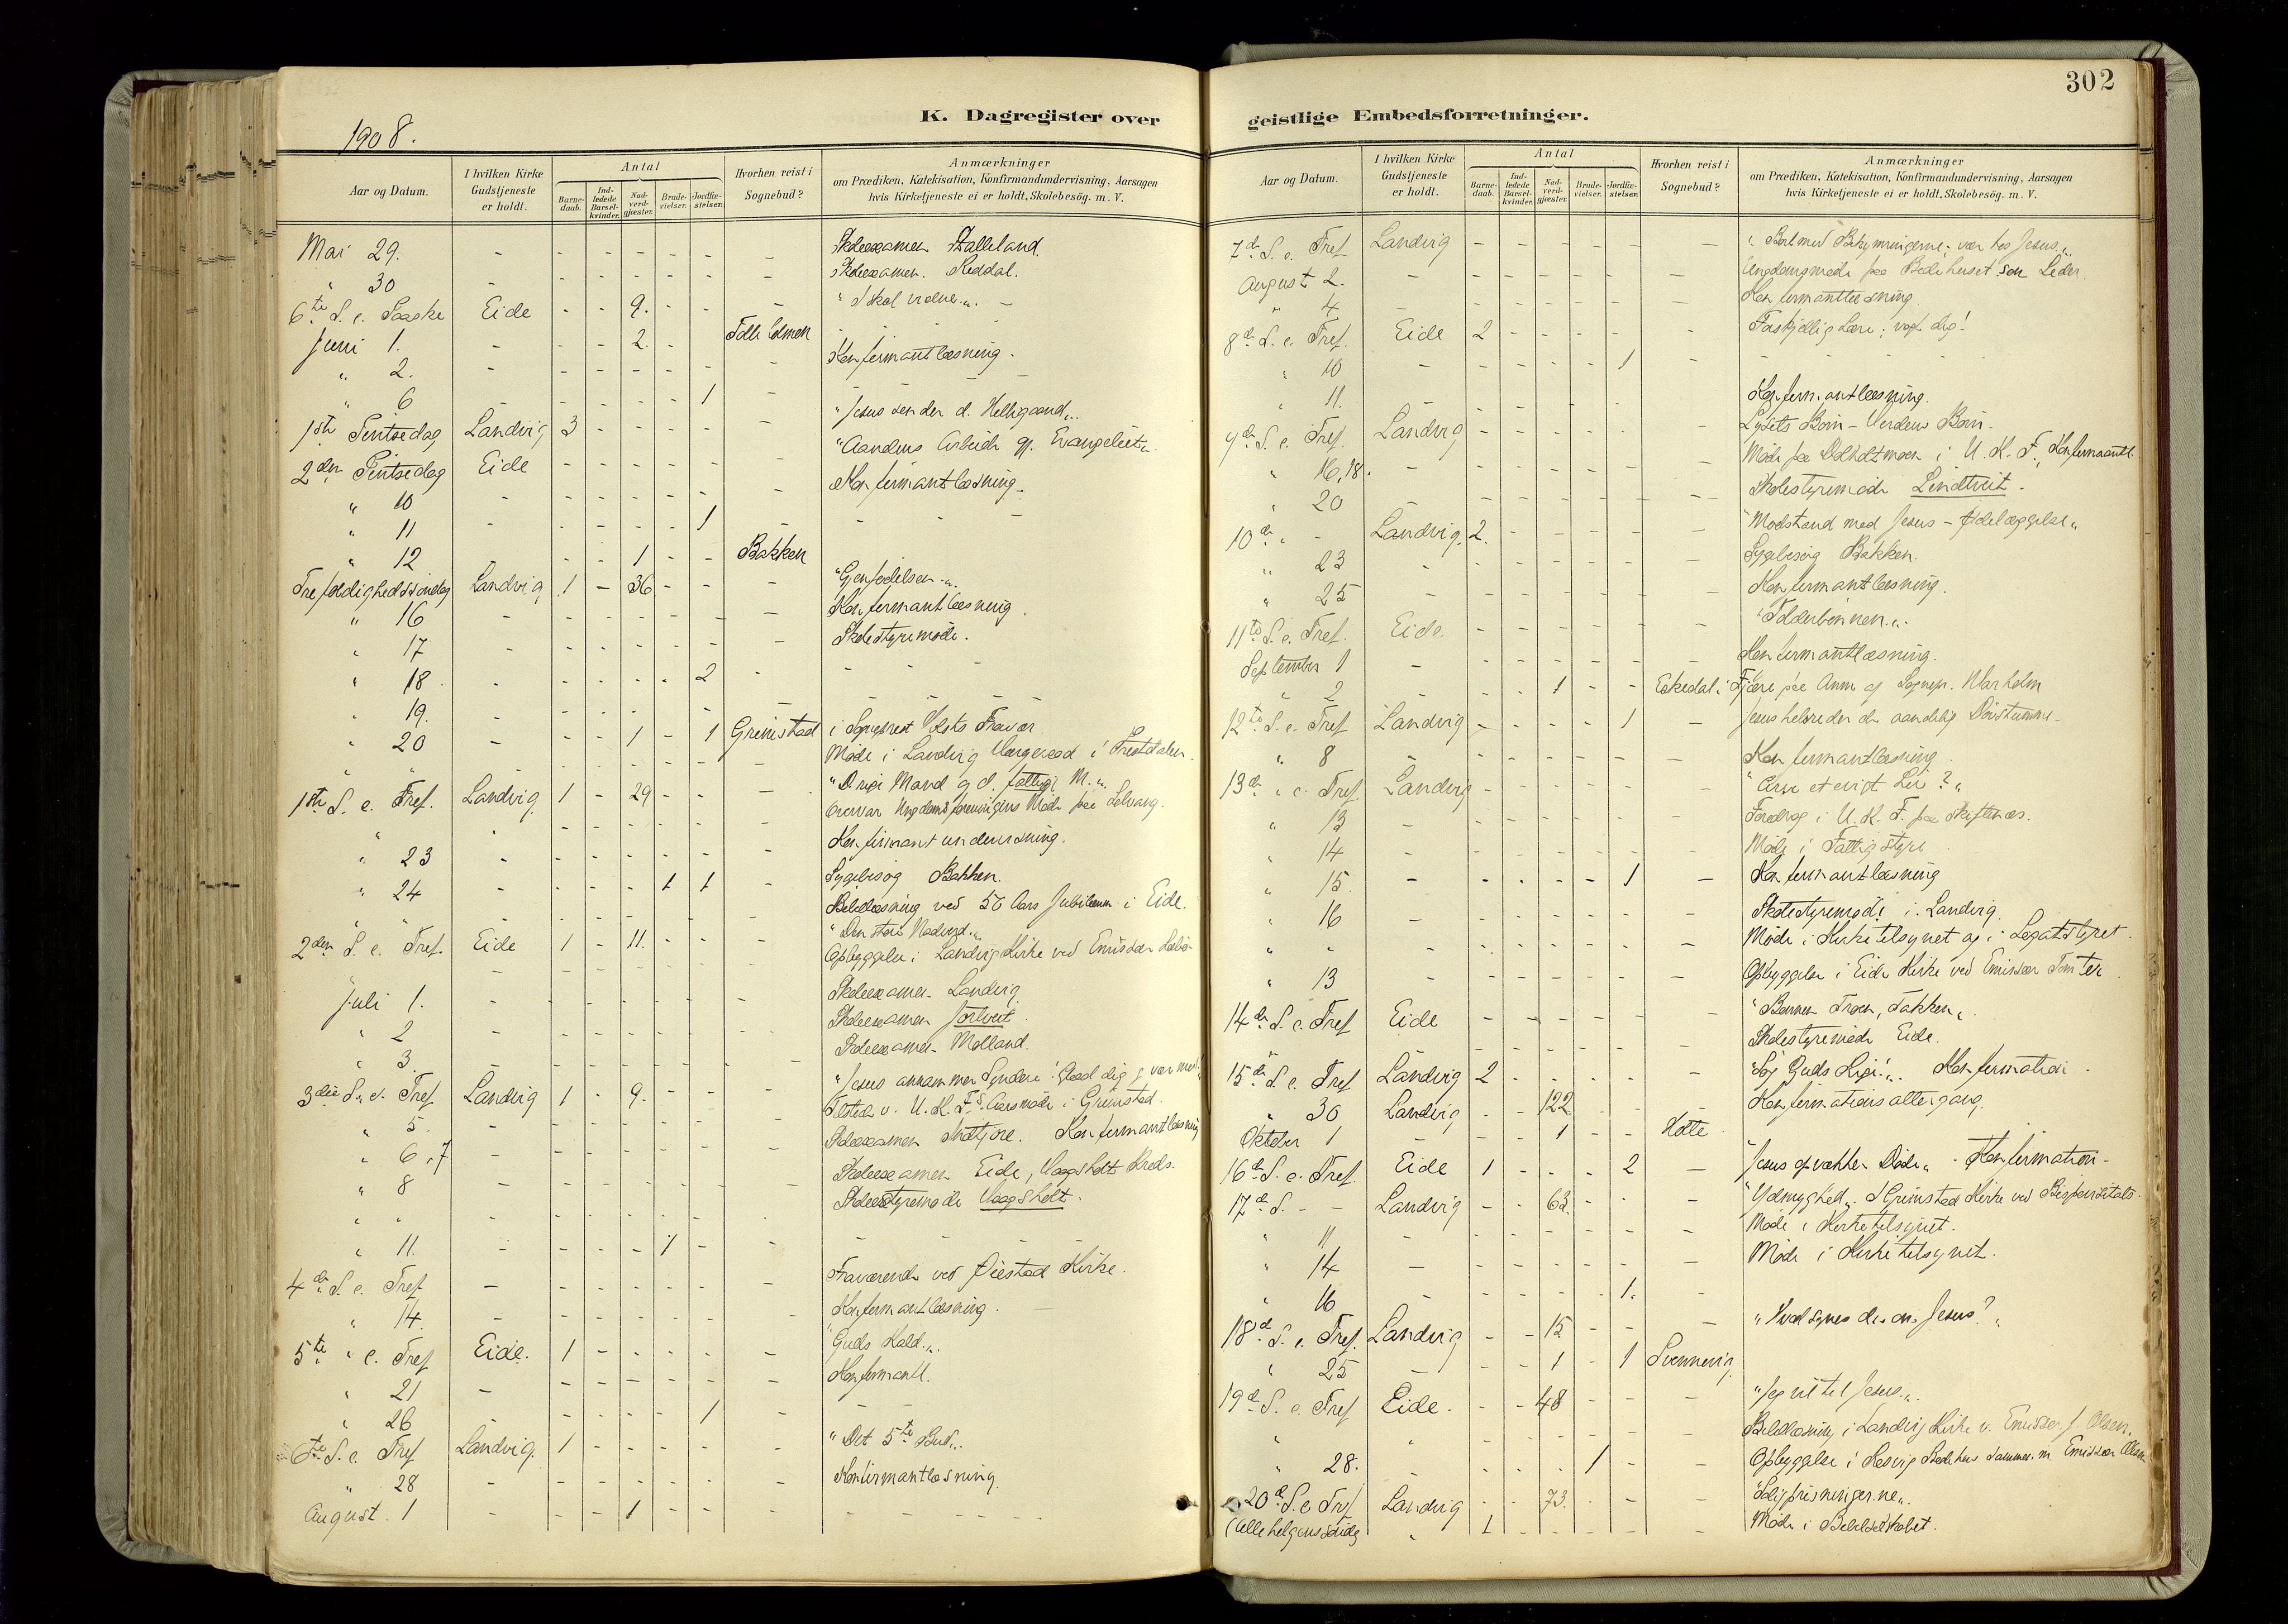 302
K. Dagregister over
geistlige Embedsforretninger.
1908.
Aar og Datum. I hvilken Kirke Gudstjeneste er holdt. Antal Barnedaab. Indledede Barselkvinder. Nadverdgjæster. Brudevielser. Jordfæstelser. Hvorhen reist i Sognebud? Anmærkninger om Prædiken, Katekisation, Konfirmandundervisning, Aarsagen hvis Kirketjeneste ei er holdt, Skolebesög. m. V.
Mai 29. - - - - - - - Skoleexamen Stalleland.
" 30 - - - - - - - Skoleexamen. Reddal.
6te S. e. Paaske Eide - - 9. - - - "I skal vidne". -
Juni 1. - - - 2. - -
" 2. - - - - - - - Konfirmantlæsning.
" 6 - - - - - 1 -
1ste Pintsedag Landvig 3 - - - - - "Jesus sender d. Helligaand".
2den Pintsedag Eide - - - - - - "Aandens Arbeide gj. Evangeliet".
" 10 - - - - - - - Konfirmantlæsning.
" 11 - - - - - 1 -
" 12 - - - 1 - - Bakken
Trefoldighedssöndag Landvig 1 - 36 - - - "Gjenfødelsen".
" 16 - - - - - - - Konfirmantlæsning.
" 17 - - - - - - - Skolestyremöde.
" 18 - - - - - 2 -
" 19. - - - - - - -
" 20 - - - 1 - 1 Grimstad i Sogneprest Holsts Fravær.
" " - - - - - - Möde i Landvig Værgeraad i
1ste S. e. Tref. Landvig 1 - 29 - - - "D. rige Mand og d. fattige M."
" " - - - - - - Ungdomsforenings Möde paa
" 23 - - - - - - - Konfirmantundervisning.
" 24 - - - - 1 1 - Sygebesög Bakken.
" " - - - - - - Bibellæsning ved 50 Aars Jubilæum i Eide.
2den S. e. Tref. Eide 1 - 11. - - - "Den store Nadverd".
- - - - - - - Opbyggelse i Landvig Kirke ved Emissær
Juli 1. - - - - - - - Skoleexamen Landvig.
" 2 - - - - - - - Skoleexamen Jortveit.
" 3. - - - - - - - Skoleexamen Molland.
3die S. e. Tref. Landvig 1 - 9. - - - "Jesus annammer Syndere: Glæd dig og vær med!"
" 5. - - - - - - - Tilstede v. U. K. F.s Aarsmöde i Grimstad.
" 6, 7 - - - - - - - Skoleexamen Konfirmantlæsning
" 8 - - - - - - - Skoleexamen Eide, Vaagsholt Kreds.
" " - - - - - - Skolestyremöde Vaagsholt.
" 11. - - - - 1 - -
4de S. e. Tref. - - - - - - - Fraværende ved Øiestad Kirke.
" 14. - - - - - - - Konfirmantlæsning.
5te " e. Tref Eide. 1 - - - - - "Guds Kald".
" 21 - - - - - - - Konfirmantl.
" 26 - - - - - 1 -
6te S. e. Tref Landvig. 1 - - - - - "Det 5te Bud".
" 28 - - - - - - - Konfirmantlæsning.
August. 1 - - - 1 - - -
Aar og Datum. I hvilken Kirke Gudstjeneste er holdt. Antal Barnedaab. Indledede Barselkvinder. Nadverdgjæster. Brudevielser. Jordfæstelser. Hvorhen reist i Sognebud? Anmærkninger om Prædiken, Katekisation, Konfirmandundervisning, Aarsagen hvis Kirketjeneste ei er holdt, Skolebesög. m. V.
7de S. e. Tref Landvig - - - - - - "Bort med Bekymringerne; vær hos Jesus".
August 2. - - - - - - - Ungdomsmöde paa Bedehuset som Leder.
" 4 - - - - - - - Konfirmantlæsning.
8de S. e. Tref. Eide 2 - - - - - Forskjellig Lære; vogt dig!
" 10 - - - - - 1 -
" 11. - - - - - - Konfirmantlæsning.
9de S. e. Tref. Landvig - - - - - - Lysets Börn - Verdens Börn.
" 16, 18. - - - - - - Möde paa i U. K. F., Konfirmantl.
" 20 - - - - - - - Skolestyremöde Lindtveit.
10de " - Landvig. 2. - - - - - "Modstand mod Jesus - Ødelæggelse"
" 23 - - - - - - - Sygebesög Bakken.
" 25 - - - - - - - Konfirmantlæsning.
11te S. e. Tref. Eide. - - - - - - "Tolderbönnen".
September 1 - - - - - - - Konfirmantlæsning.
" 2 - - - 1 - - Eskedal i Fjære paa Anm. af Sognepr.
12te S. e. Tref. Landvig - - - - 1 - Jesus helbreder den aandelig Døvstumme.
" 8 - - - - - - - Konfirmantlæsning.
13de " e. Tref. Landvig - - - - - - "Arve et evigt Liv?"
" 13 - - - - - - - Foredrag i U. K. F. paa Skiftenes.
" 14 - - - - - - - Möde i Fattigstyre
" 15. - - - - - 1 - Konfirmantlæsning
" 16 - - - - - - - Skolestyremöde i Landvig.
" " - - - - - - Möde i Kirketilsynet og i Legatstyret.
" 13 - - - - - - Opbyggelse i Eide Kirke ved Emissær Tomter.
14de S. e. Tref Eide - - - - - - "Bönnen, Troen, Takken".
" - - - - - - Skolestyremöde Eide.
15de S. e. Tref Landvig 2 - - - - - "Søg Guds Rige!" Konfirmation.
" 30 Landvig - - 122 - - Konfirmationsaltergang.
Oktober 1 - - - 1 - - Holte
16de S. e. Tref. Eide 1 - - - 2 - "Jesus opvækker Døde" - Konfirmation-
17de S. - - Landvig - - 63. - - - "Ydmyghed". I Grimstad Kirke ved
" 11 - - - - - - - Möde i Kirketilsynet.
" 14 - - - - - - - Möde i Kirketilsynet.
" 16 - - - - - 1. -
18de S. e. Tref. Landvig - - 15 - - - "Hvad synes du om Jesus?"
" 25 - - - 1 - 1 Svennevig.
19de S. e. Tref Eide. - - 48 - - - "Jeg vil til Jesus".
" " - - - - - - Bibellæsning i Landvig Kirke v. Emissær J. Olsen.
" 28. - - - - 1 - - Opbyggelse i Bedehus sammen m. Emissær Olsen
20de S. e. Tref Landvig - - 73. - - - "Saligprisningerne".
(Allehelgenssöndg " 1 - - - - Möde i Bibelselskabet.